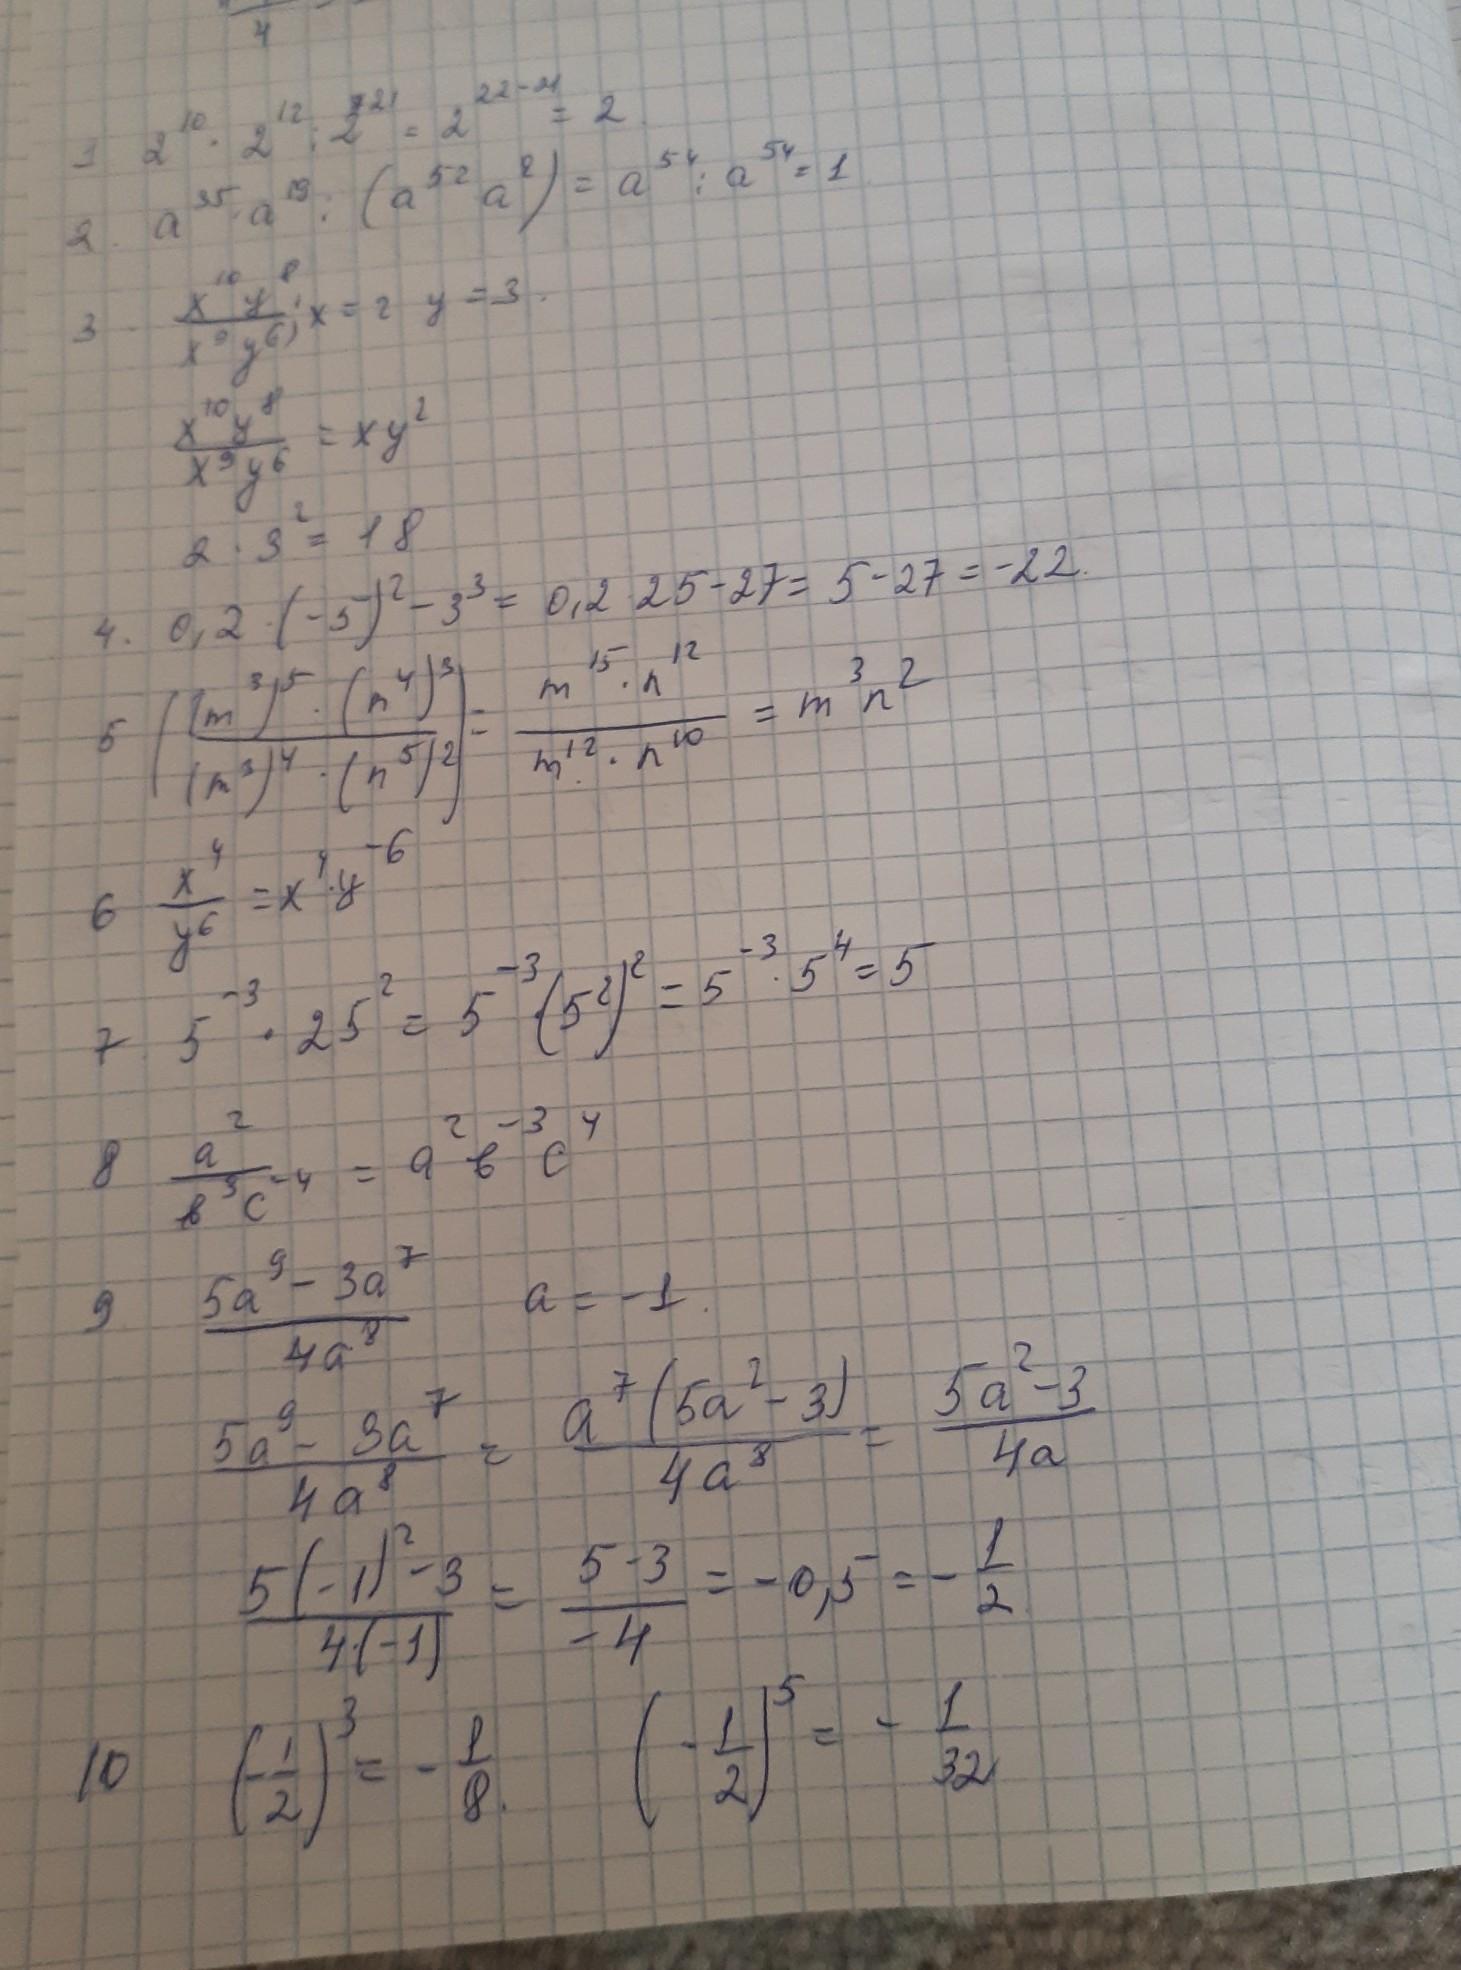 4
1 2^10 · 2^12 : 2^21 = 2^22-21 = 2
2. a^35 · a^19 : (a^52 a^2) = a^54 : a^54 = 1
3 x^10 y^8 / x^9 y^6 ; x = 2 y = 3.
x^10 y^8 / x^9 y^6 = xy^2
2 · 3^2 = 18
4. 0,2 · (-5)^2 - 3^3 = 0,2 25 - 27 = 5 - 27 = -22.
5 ((m^3)^5 · (n^4)^3 / (m^3)^4 · (n^5)^2) = m^15 · n^12 / m^12 · n^10 = m^3 n^2
6 x^4 / y^6 = x^4 · y^-6
7. 5^-3 · 25^2 = 5^-3 · (5^2)^2 = 5^-3 · 5^4 = 5
8 a^2 / в^3 c^-4 = a^2 в^-3 c^4
9. 5a^9 - 3a^7 / 4a^8 a = -1.
5a^9 - 3a^7 / 4a^8 = a^7 (5a^2 - 3) / 4a^8 = 5a^2 - 3 / 4a
5(-1)^2 - 3 / 4·(-1) = 5 - 3 / -4 = -0,5 = - 1/2
10 (-1/2)^3 = - 1/8. (-1/2)^5 = - 1/32